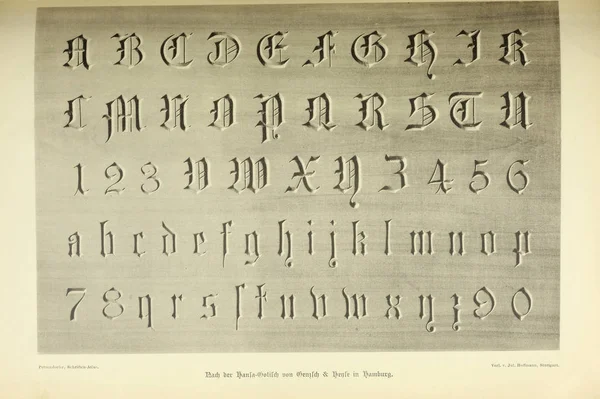 A B C D E F G H I K
L M N O P Q R S T U
1 2 3 V W X Y Z 4 5 6
a b c d e f g h i j k l m n o p
7 8 q r s ſ t u v w x y z 9 0
Petzendorfer, Schriften-Atlas.
Verl. v. Jul. Hoffmann, Stuttgart.
Nach der Hansa-Gotisch von Genzsch & Heyse in Hamburg.